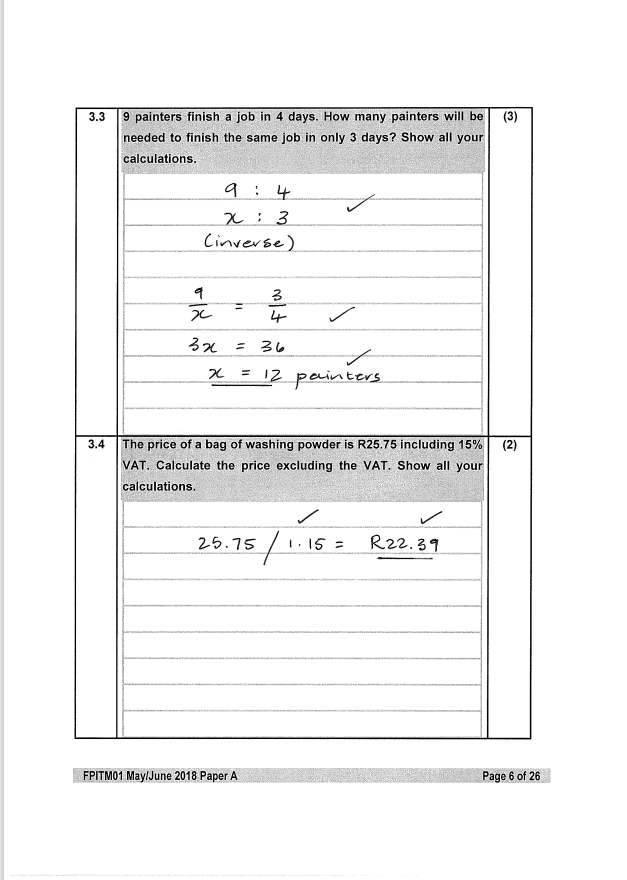 3.3 9 painters finish a job in 4 days. How many painters will be (3)
needed to finish the same job in only 3 days? Show all your
calculations.
9 : 4
x : 3 ✓
(inverse)
9/x = 3/4 ✓
3x = 36
x = 12 painters ✓
3.4 The price of a bag of washing powder is R25.75 including 15% (2)
VAT. Calculate the price excluding the VAT. Show all your
calculations.
✓ ✓
25.75 / 1.15 = R22.39
FPITM01 May/June 2018 Paper A Page 6 of 26